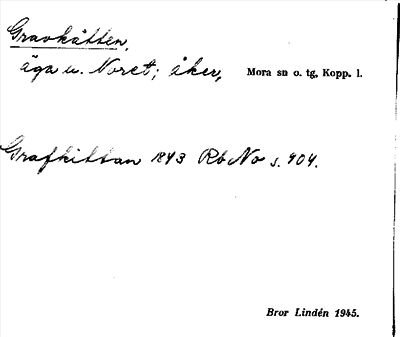 Gravkätten,
äga u. Noret; åker, Mora sn o. tg, Kopp. l.
Grafkittan 1843 Rb No s. 904.
Bror Lindén 1945.